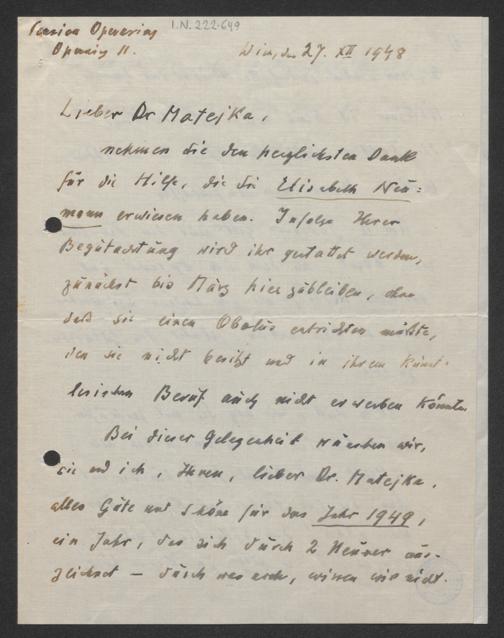 Pension Opernring
I.N. 222.649
Opernring 11.
Wien, den 27. XII 1948
Lieber Dr Matejka,
nehmen Sie den herzlichsten Dank
für die Hilfe, die Sie Elisabeth Neu=
mann erwiesen haben. Infolge Ihrer
Begutachtung wird ihr gestattet werden,
zunächst bis März hierzubleiben, ohne
daß sie einen Obolus entrichten müßte,
den sie nicht besitzt und in ihrem künst-
lerischen Beruf auch nicht erwerben könnte.
Bei dieser Gelegenheit wünschen wir,
sie und ich, Ihnen, lieber Dr. Matejka,
alles Gute und Schöne für das Jahr 1949,
ein Jahr, das sich durch 2 Neuner aus-
zeichnet — durch was noch, wissen wir nicht.